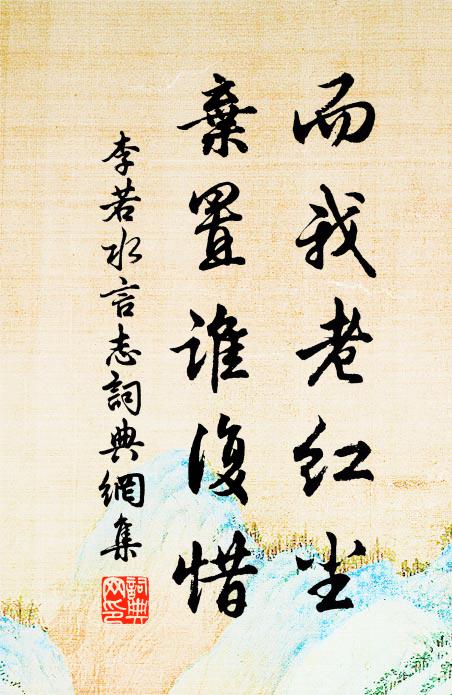 而我老红尘
棄置誰復惜
李若水言志詞典網集
詞典
网印